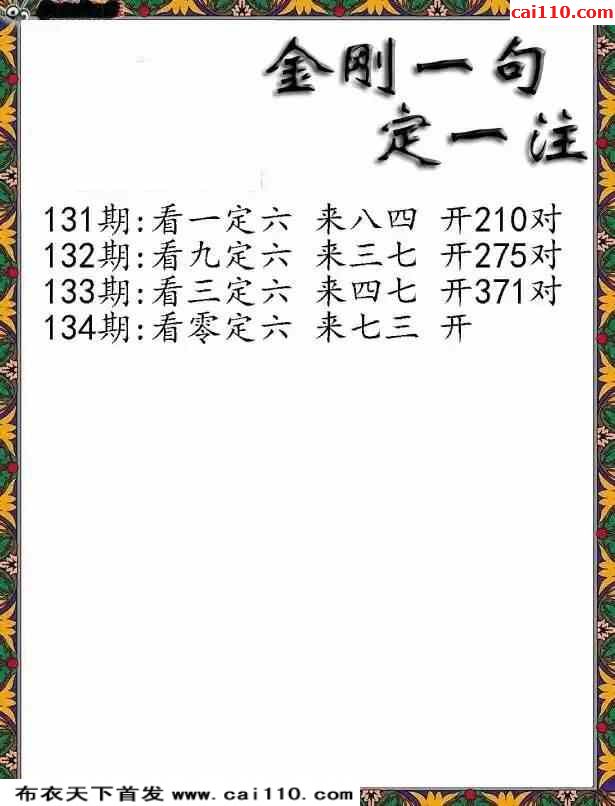 cai110.com
金刚一句
定一注
131期:看一定六 来八四 开210对
132期:看九定六 来三七 开275对
133期:看三定六 来四七 开371对
134期:看零定六 来七三 开
布衣天下首发 www.cai110.com